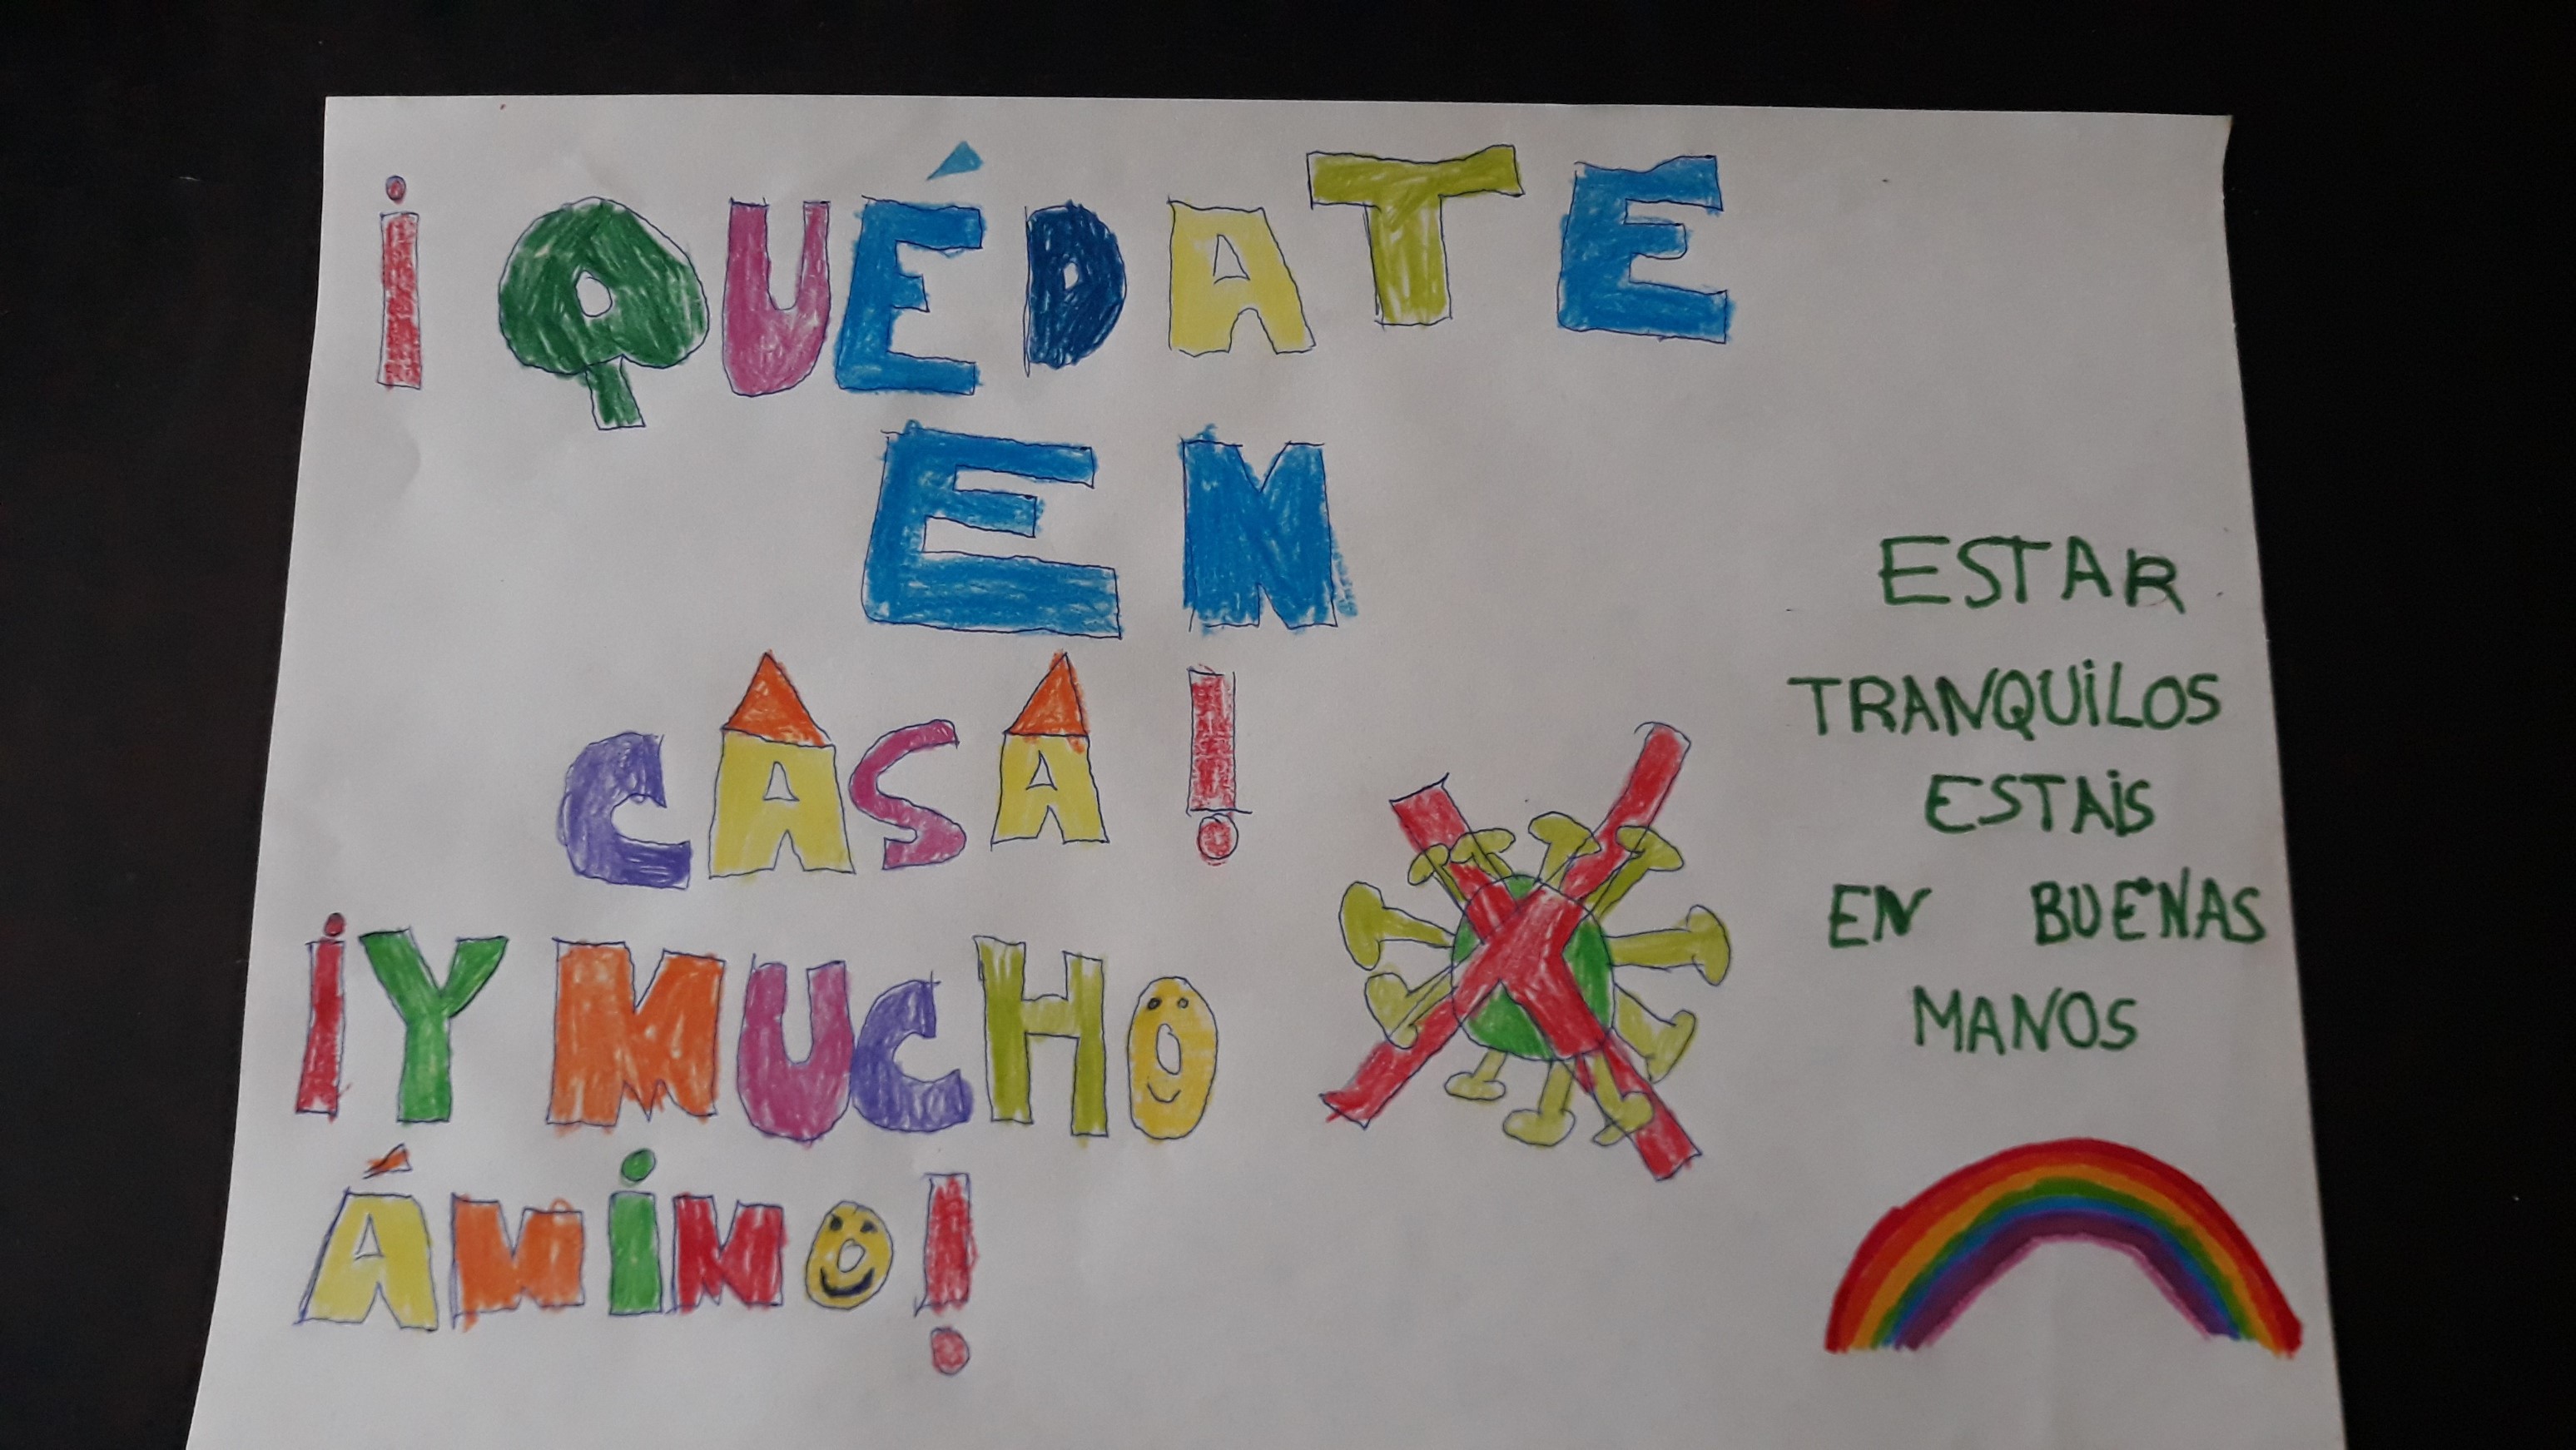 ¡QUÉDATE
EN
CASA!
¡Y MUCHO
ÁNIMO!
ESTAR
TRANQUILOS
ESTAIS
EN BUENAS
MANOS